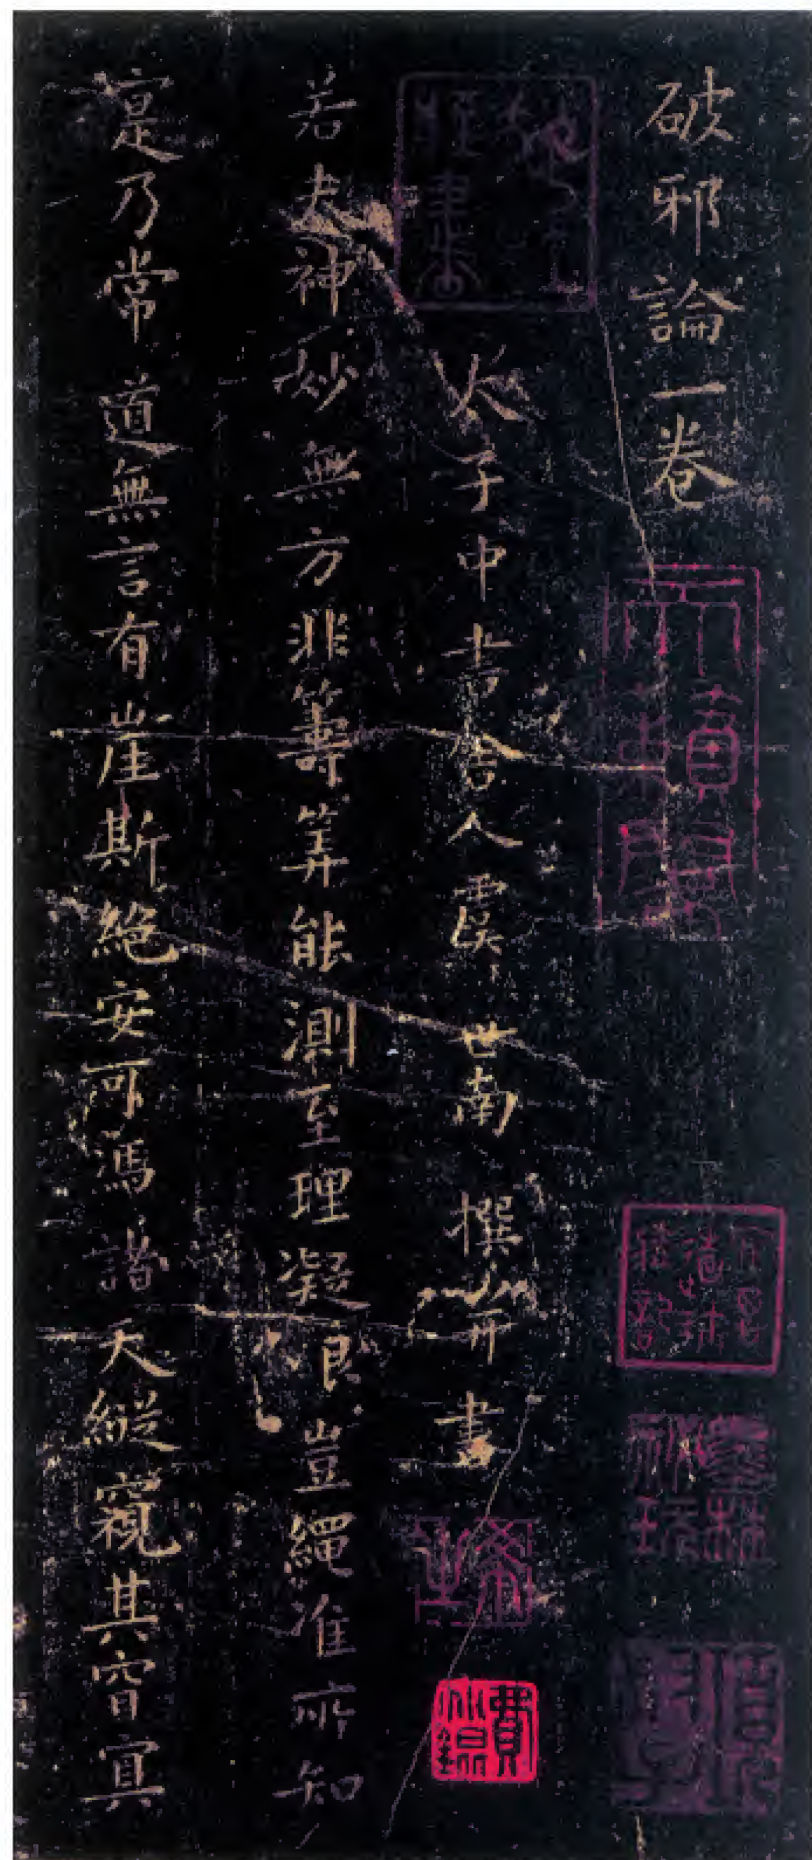 破邪論一卷
太子中書舍人虞世南 撰并書
若夫神妙無方非籌筭能測至理凝邈豈繩准所知
寔乃常道無言有崖斯絶安可憑諸天縱窺其窅寘
費錫